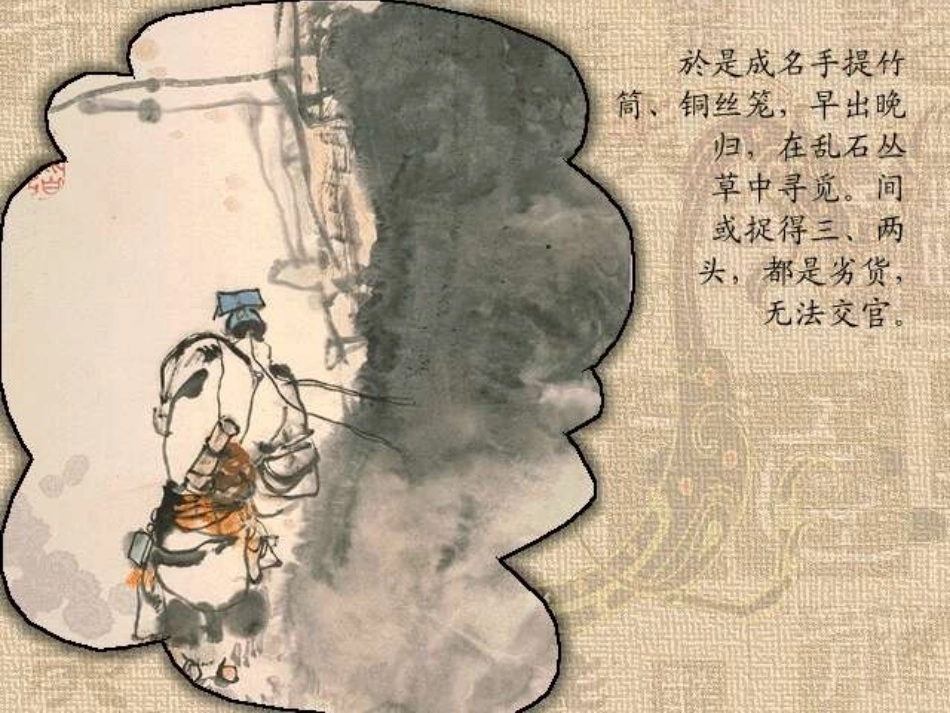 於是成名手提竹
筒、铜丝笼，早出晚
归，在乱石丛
草中寻觅。间
或捉得三、两
头，都是劣货，
无法交官。